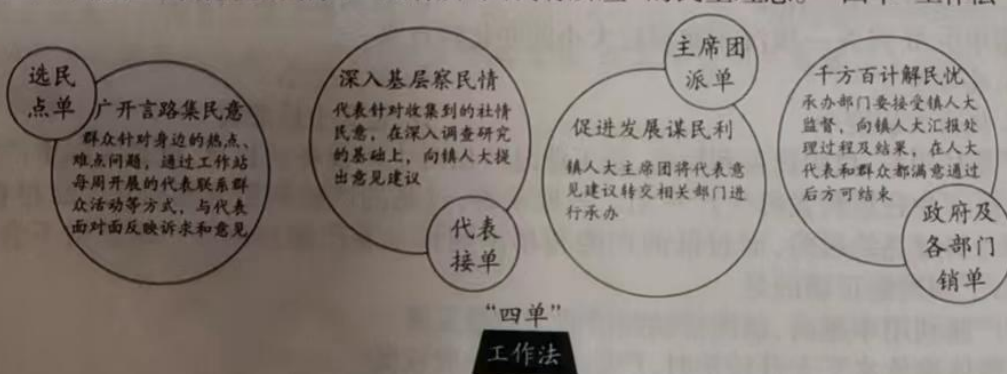 选民
点单
广开言路集民意
群众针对身边的热点、
难点问题，通过工作站
每周开展的代表联系群
众活动等方式，与代表
面对面反映诉求和意见
深入基层察民情
代表针对收集到的社情
民意，在深入调查研究
的基础上，向镇人大提
出意见建议
代表
接单
主席团
派单
促进发展谋民利
镇人大主席团将代表意
见建议转交相关部门进
行承办
千方百计解民忧
承办部门要接受镇人大
监督，向镇人大汇报处
理过程及结果，在人大
代表和群众都满意通过
后方可结束
政府及
各部门
销单
“四单”
工作法